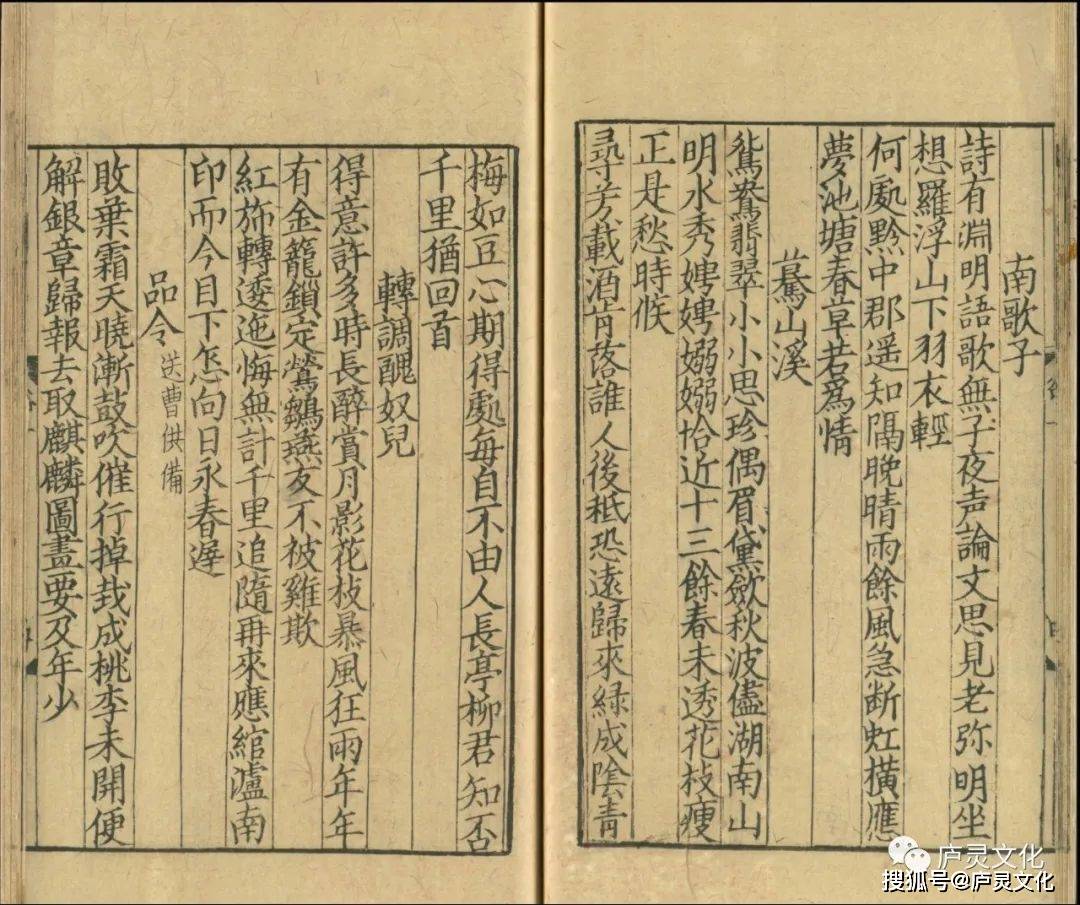 南歌子
詩有淵明語歌無子夜声論文思見老弥明坐
想羅浮山下羽衣輕
何處黔中郡遥知隔晚晴雨餘風急断虹橫應
夢池塘春草若爲情
驀山溪
鴛鴦翡翠小小思珍偶眉黛斂秋波儘湖南山
明水秀娉娉嫋嫋恰近十三餘春未透花枝瘦
正是愁時候
尋芳載酒肯落誰人後秪恐遠歸來緑成陰青
梅如豆心期得處每自不由人長亭柳君知否
千里猶回首
轉調醜奴兒
得意許多時長醉賞月影花枝暴風狂雨年年
有金籠鎖定鶯鶵燕友不被雞欺
紅旆轉逶迤悔無計千里追隨再來應綰瀘南
印而今目下怎向日永春遲
品令 送曹供備
敗葉霜天曉漸鼓吹催行掉栽成桃李未開便
解銀章歸報去取麒麟圖畫要及年少
庐灵文化
搜狐号@庐灵文化